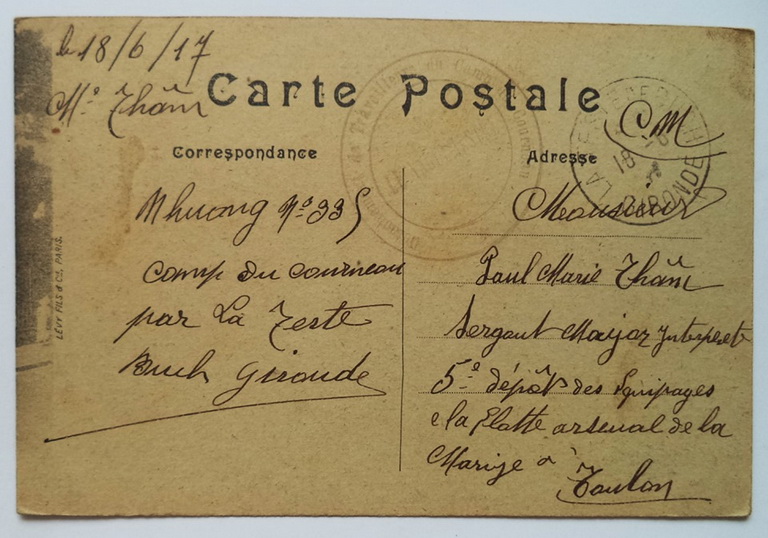 le 18/6/17
Mr Thâm
Carte Postale
CM
Correspondance
Adresse
Nhuong No 335
camp du courneau
par La Teste
Buch Gironde
LÉVY FILS & Cie, PARIS.
Monsieur
Paul Marie Thâm
Sergent Major Interprete
5e dépôt des Equipages
de la Flotte arsenal de la
Marine à
Toulon
LA TESTE DE BUCH
18 -6
GIRONDE
de Travailleurs du Camp